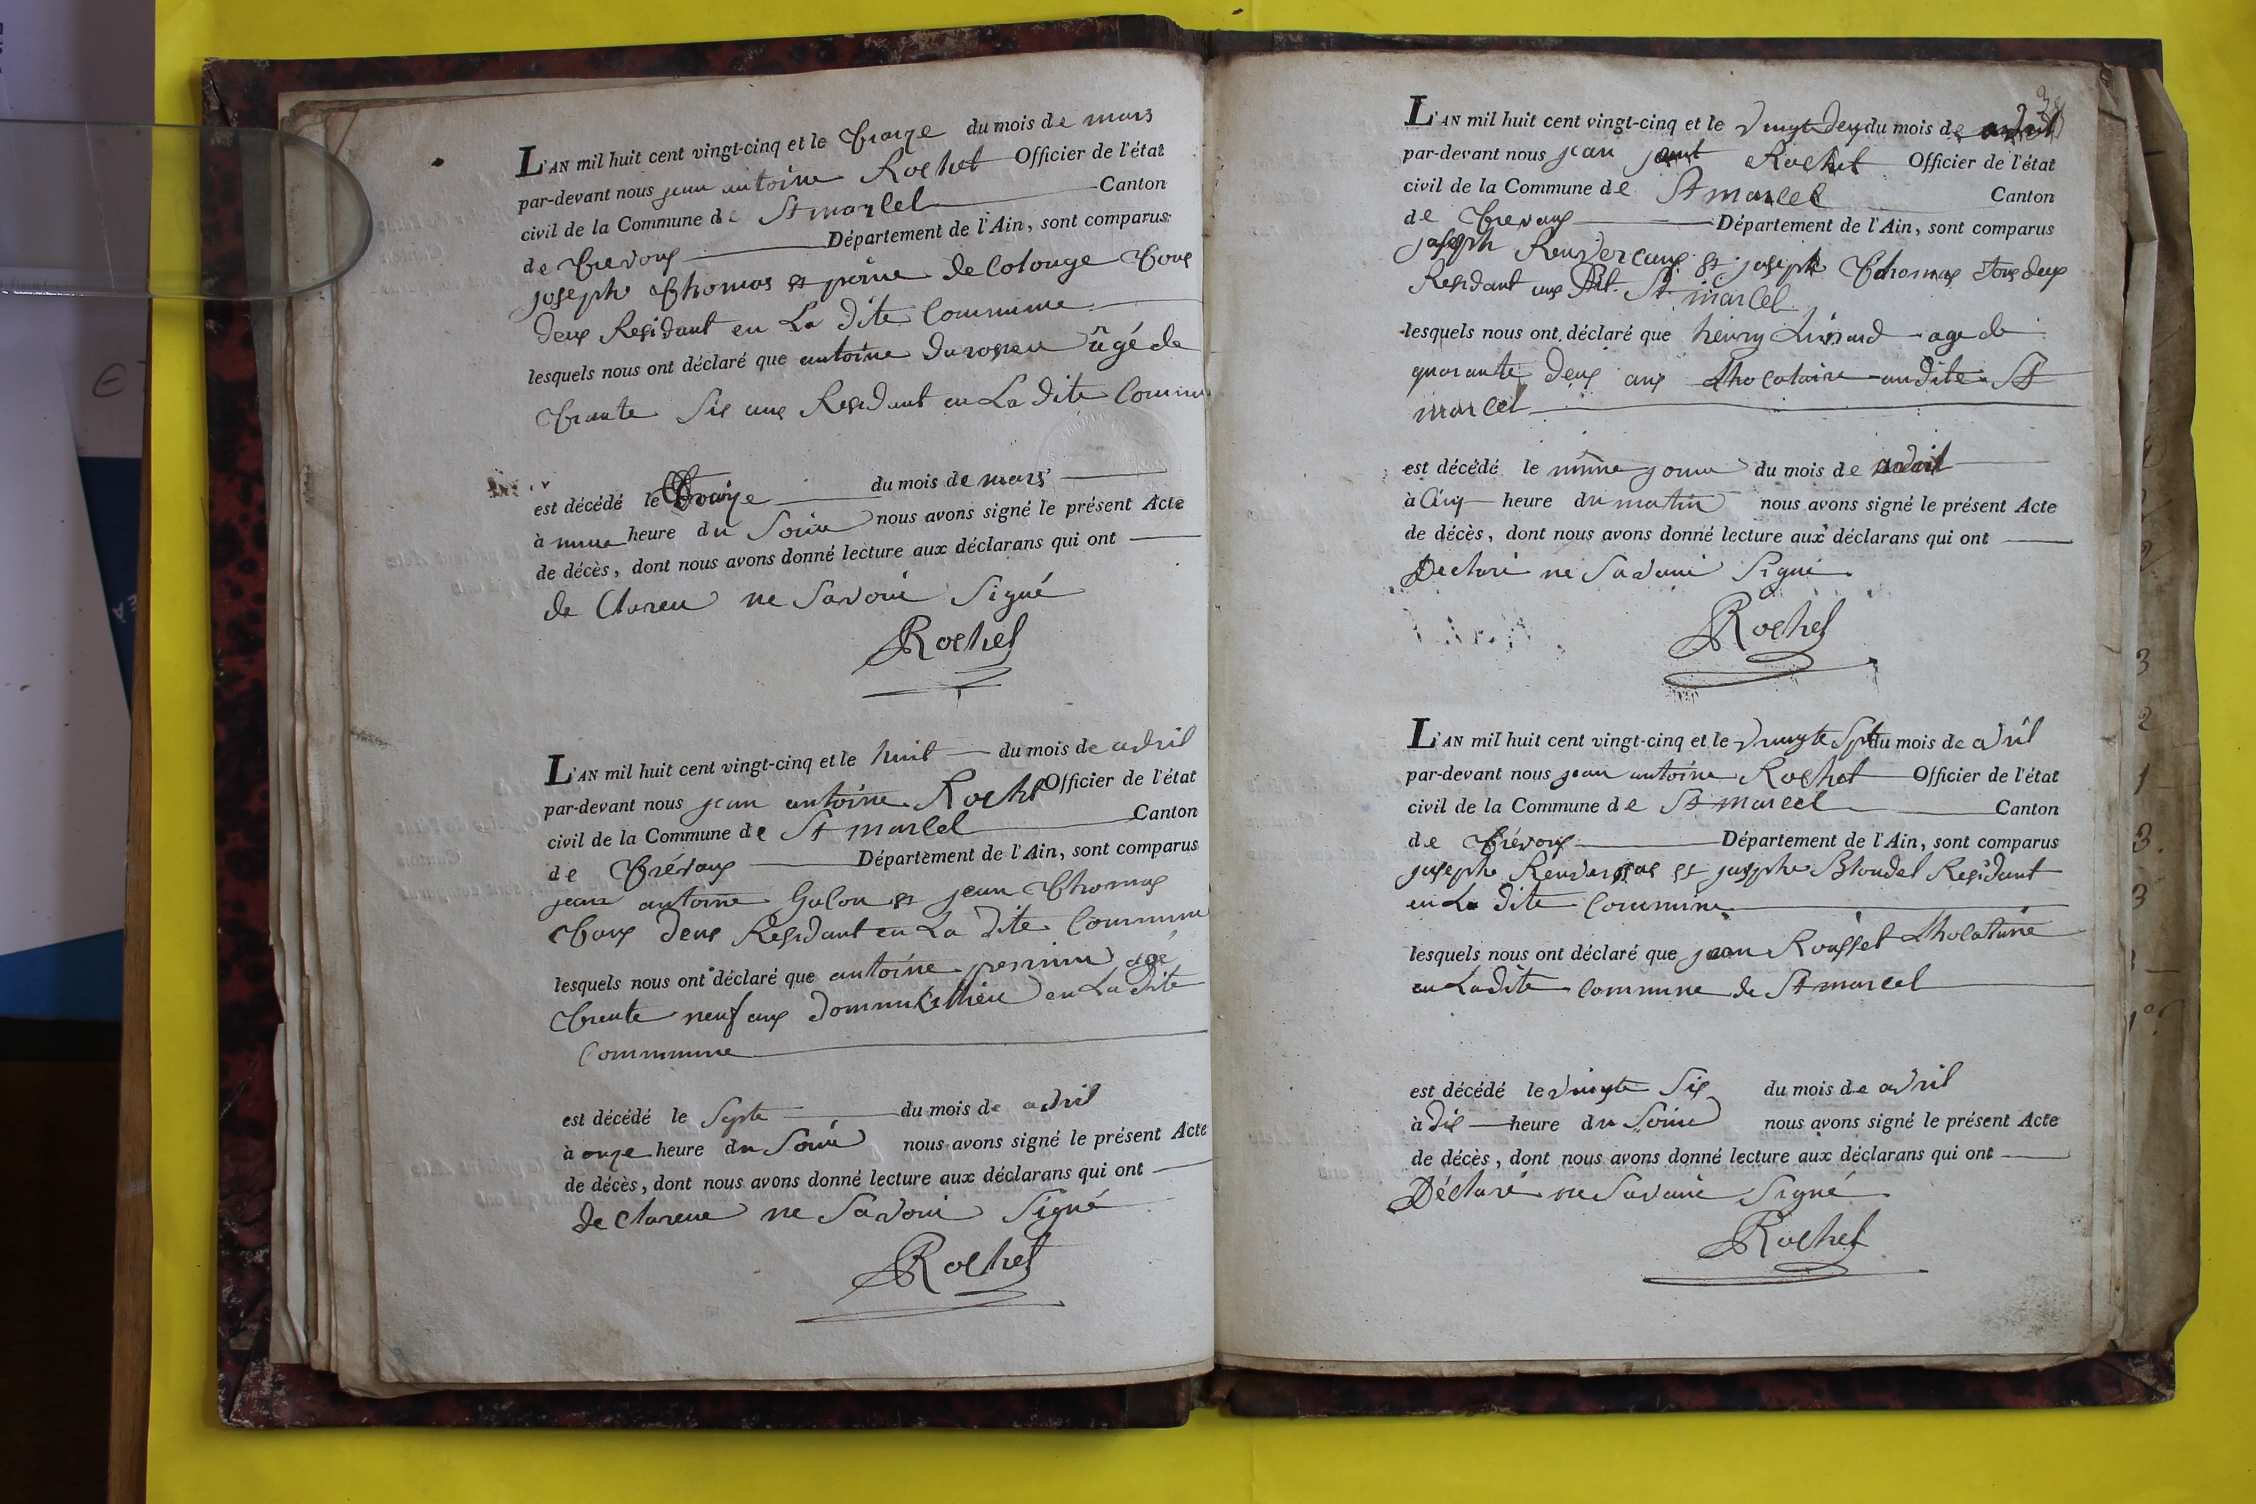 L'AN mil huit cent vingt-cinq et le traize du mois de mars
par-devant nous jean antoine Rochet Officier de l'état
civil de la Commune de St marcel Canton
de trevoux Département de l'Ain, sont comparus
joseph thomas et de Colonge tous
deux Residant en La dite Commune
lesquels nous ont déclaré que antoine âgé de
trante Six ans Residant en La dite Commu
est décédé le du mois de mars
à heure du Soire nous avons signé le présent Acte
de décès, dont nous avons donné lecture aux déclarans qui ont
de Clareu ne Savoir Signé
Rochet
L'AN mil huit cent vingt-cinq et le huit du mois de avril
par-devant nous jean antoine Rochet Officier de l'état
civil de la Commune de St marcel Canton
de trévoux Département de l'Ain, sont comparus
jean antoine Galon et jean thomas
tous deux Residant en La dite Commune
lesquels nous ont déclaré que antoine agé
trente neuf ans en La dite
Commmune
est décédé le Septe du mois de avril
à onze heure du Soire nous avons signé le présent Acte
de décès, dont nous avons donné lecture aux déclarans qui ont
de Clareue ne Savoir Signé
Rochet
38
L'AN mil huit cent vingt-cinq et le vingt deux du mois de avril
par-devant nous jean Rochet Officier de l'état
civil de la Commune de St marcel Canton
de trevoux Département de l'Ain, sont comparus
joseph et joseph thomas tous deux
Residant St marcel
lesquels nous ont déclaré que henry age de
quarante deux ans St
marcel
est décédé le même du mois de avril
à Cinq heure du matin nous avons signé le présent Acte
de décès, dont nous avons donné lecture aux déclarans qui ont
Declaré ne Savoir Signé
Rochet
L'AN mil huit cent vingt-cinq et le vingte Sept du mois de avril
par-devant nous jean antoine Rochet Officier de l'état
civil de la Commune de St marcel Canton
de trévoux Département de l'Ain, sont comparus
josephe et josephe Blondel Residant
en La dite Commune
lesquels nous ont déclaré que jean Rousset
en La dite Commune de St marcel
est décédé le vingte Six du mois de avril
à dix heure du Soire nous avons signé le présent Acte
de décès, dont nous avons donné lecture aux déclarans qui ont
Déclaré ne Savoir Signé
Rochet